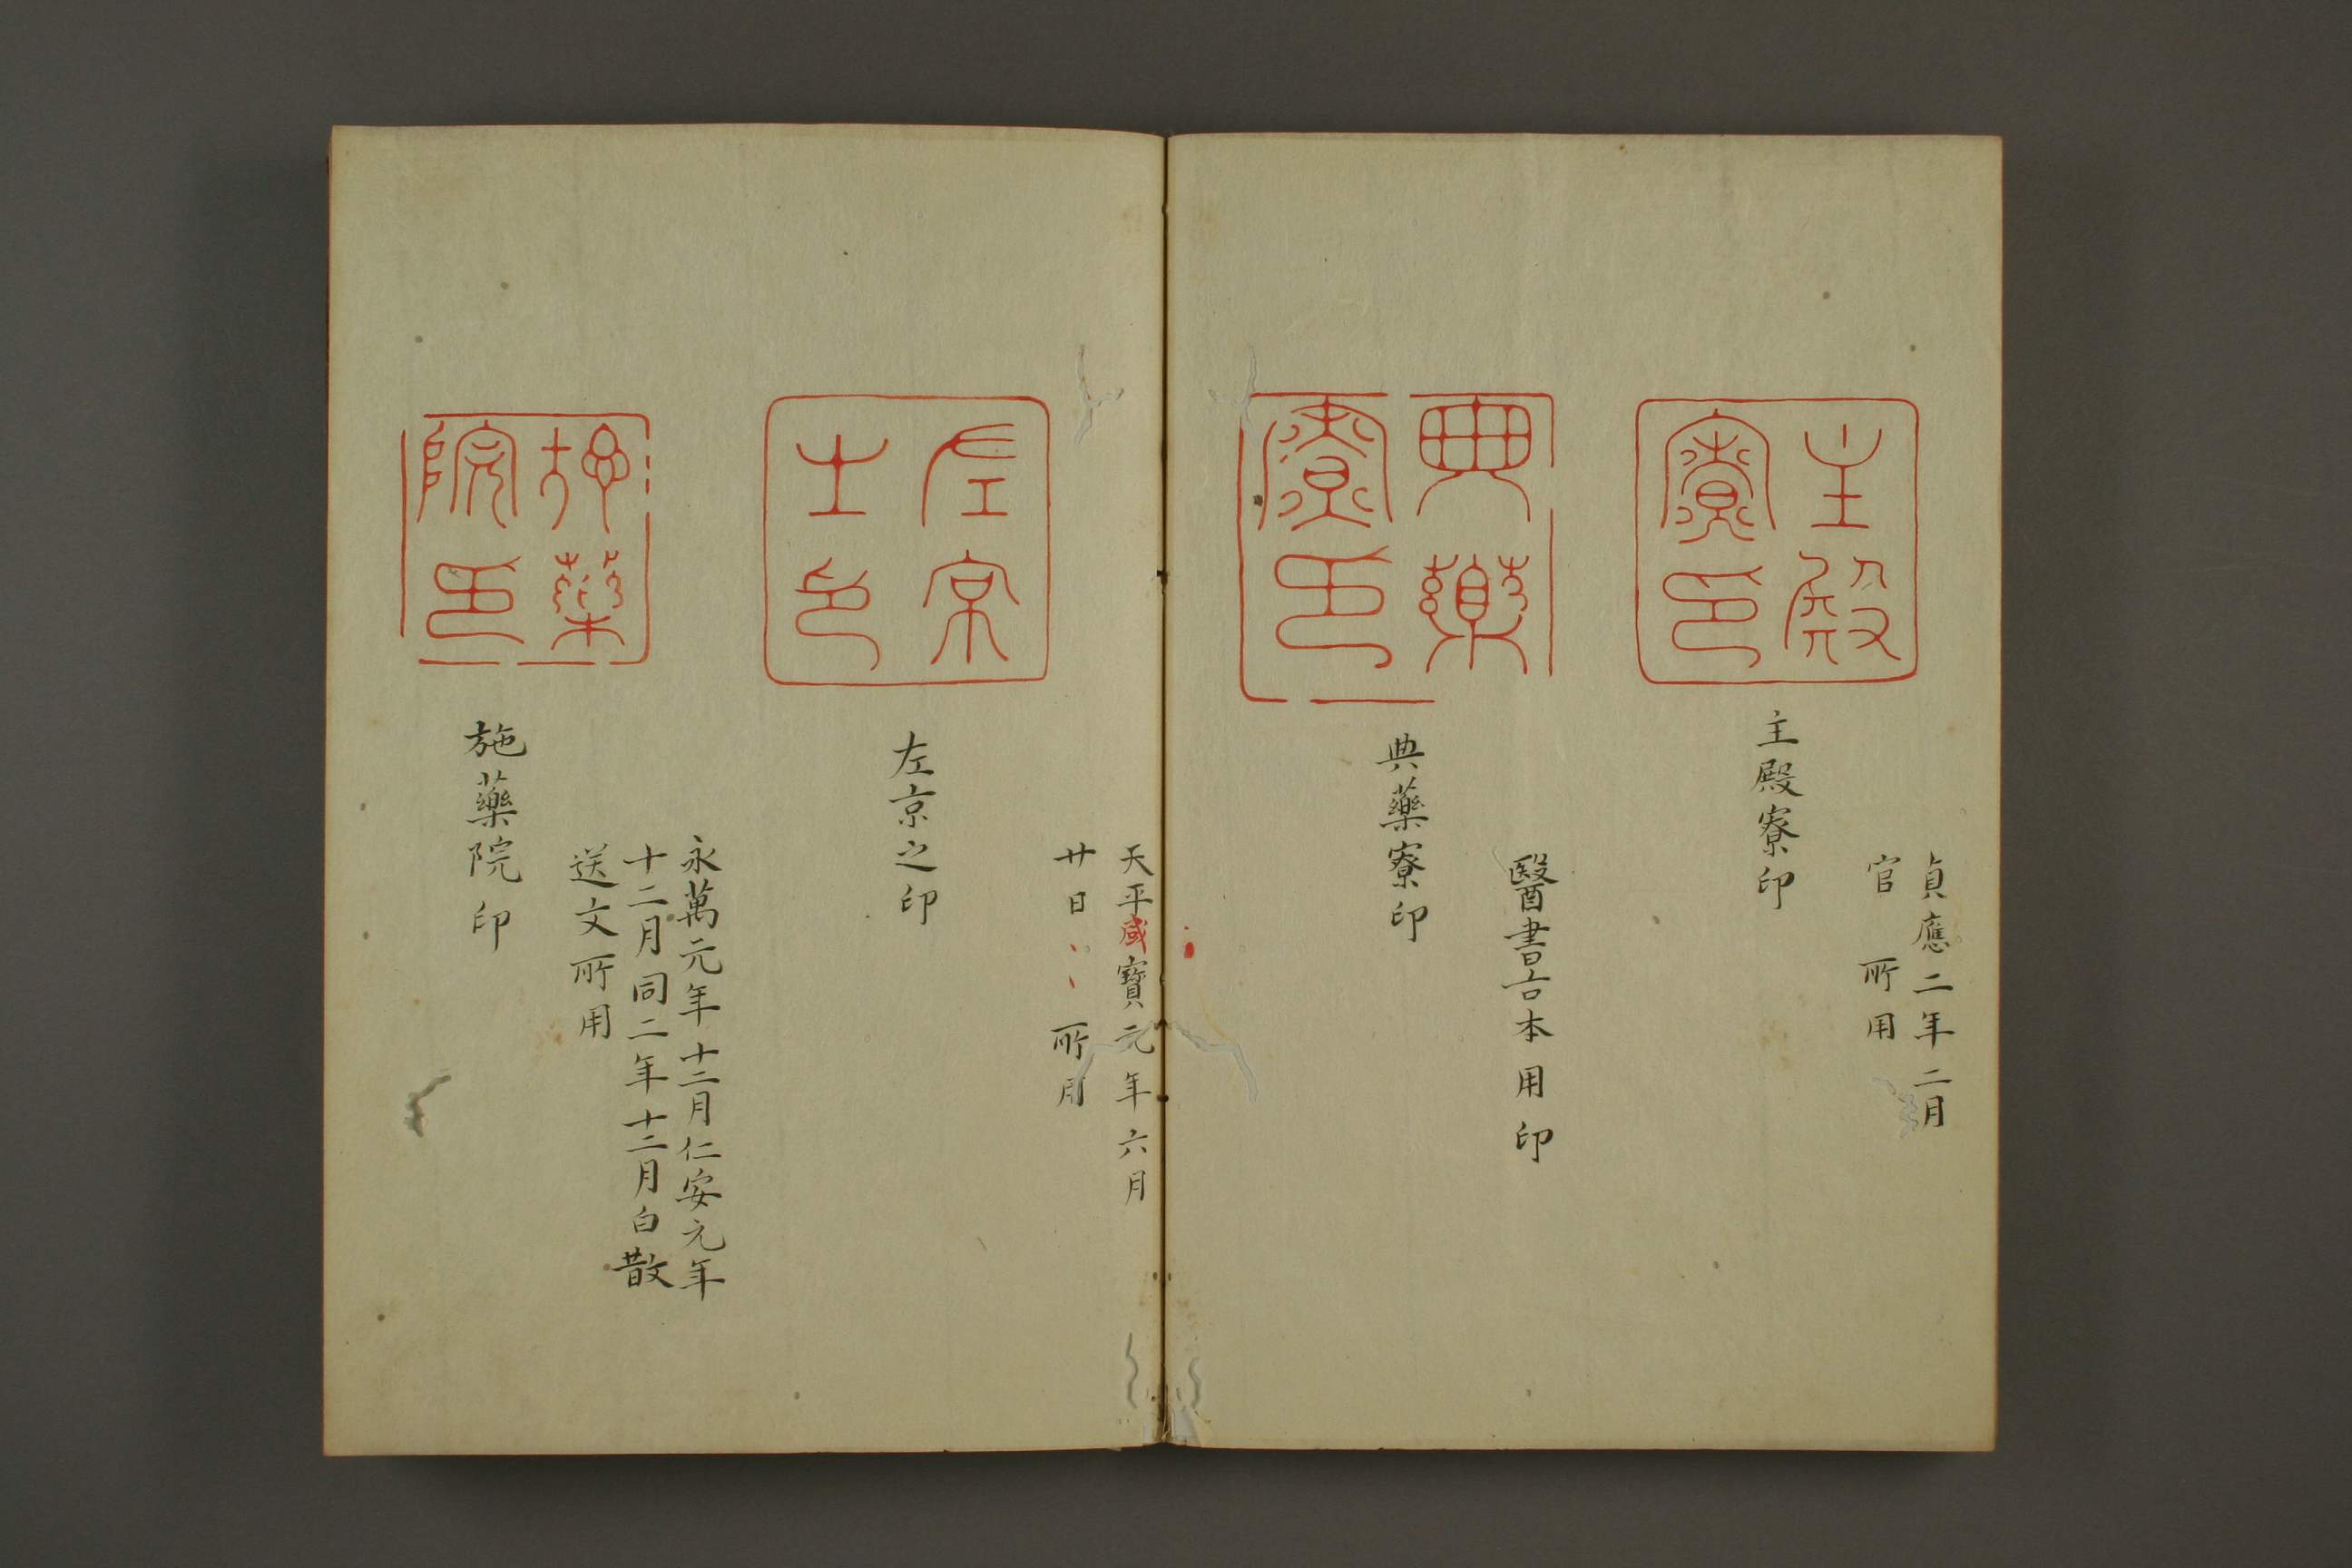 主殿
寮印
貞應二年二月
官 所用
主殿寮印
典藥
寮印
醫書古本用印
典藥寮印
左京
之印
天平感寶元年六月
廿日丶丶所用
左京之印
施藥
院印
永萬元年十二月仁安元年
十二月同二年十二月白散
送文所用
施藥院印